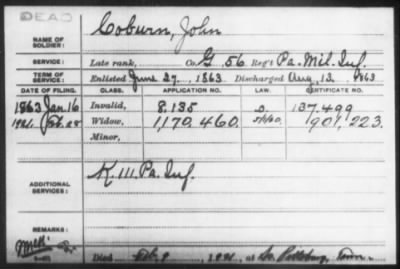 DEAD
Coburn, John
NAME OF SOLDIER:
SERVICE: Late rank, Co. G 56 Reg't Pa. Mil. Inf.
TERM OF SERVICE: Enlisted June 27, 1863. Discharged Aug. 13, 1863
DATE OF FILING. CLASS. APPLICATION NO. LAW. CERTIFICATE NO.
Jan. 16 Invalid, 8.135 137.499
Widow, 1,170,460. 901,223.
Minor,
K. 111. Pa. Inf.
ADDITIONAL SERVICES:
REMARKS:
Died at So. Pittsburg, Tenn.